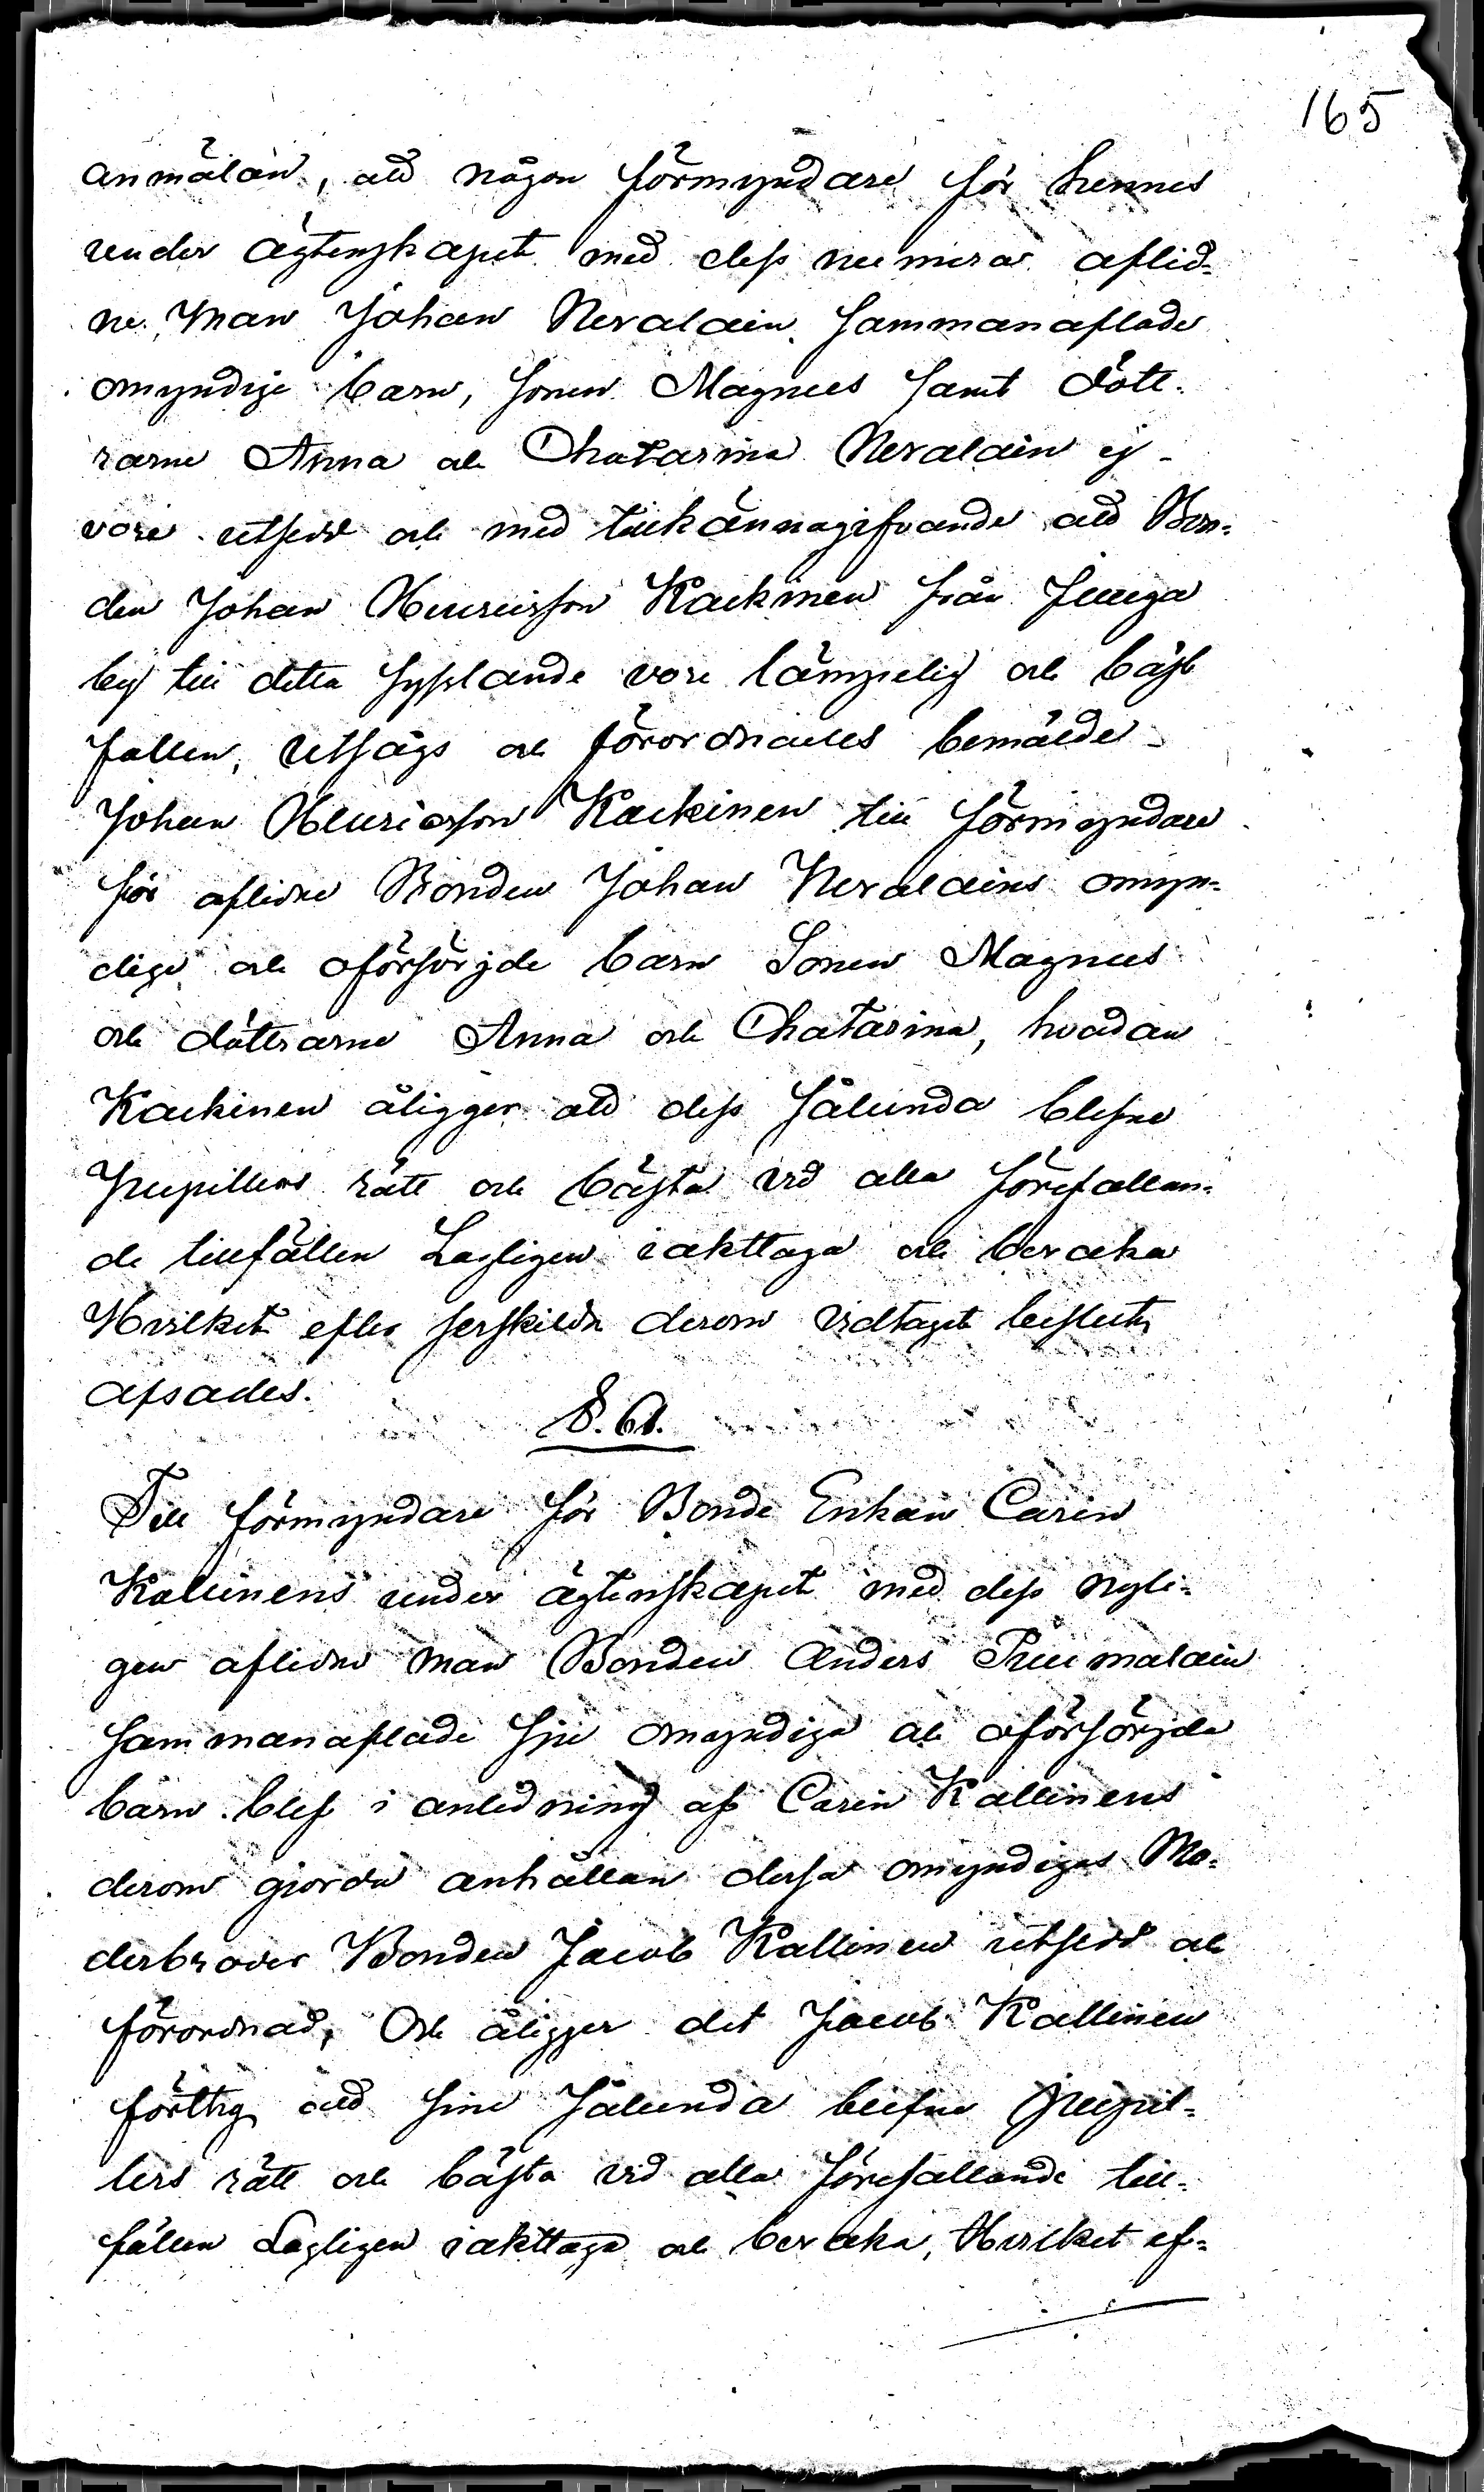 165
anmälan, att någon förmyndare för hennes
under ägtenskapet med dess numera aflid=
ne Man Johan Nevalain sammanaflade
omyndige barn, sonen Magnus samt dött=
rarne Anna och Chatarina Nevalain ej
vore utsedd och med tillkännagifvande att Bon=
den Johan Henricsson Kaikinen från Juuga
by till detta sysslande vore lämpelig och bäst
fallen, utsågs och förordnades bemälde
Johan Henricsson Kaikinen till förmyndare
för aflidne Bonden Johan Nevalains omyn=
dige och oförsörjde barn Sonen Magnus
och döttrarne Anna och Chatarina, hvadan
Kaikinen åligger att dess sålunda blefne
Pupillers rätt och bästa vid alla förefallan=
de tillfällen Lagligen iakttaga och bevaka
Hvilket efter serskildt derom vidtaget beslut
afsades.
§. 61.
Till förmyndare för Bonde Enkan Carin
Kallinens under ägtenskapet med dess nyli=
gen aflidne man Bonden Anders Tuumalain
sammanaflade sju omyndiga och oförsörjda
barn blef i anledning af Carin Kallinens
derom gjorda anhållan dessa omyndigas Mo=
derbroder Bonden Jacob Kallinen utsedd och
förordnad, Och åligger det Jacob Kallinen
förthy att sine sålunda blifne Pupil=
lers rätt och bästa vid alla förefallande till=
fällen Lagligen iakttaga och bevaka, Hvilket ef=